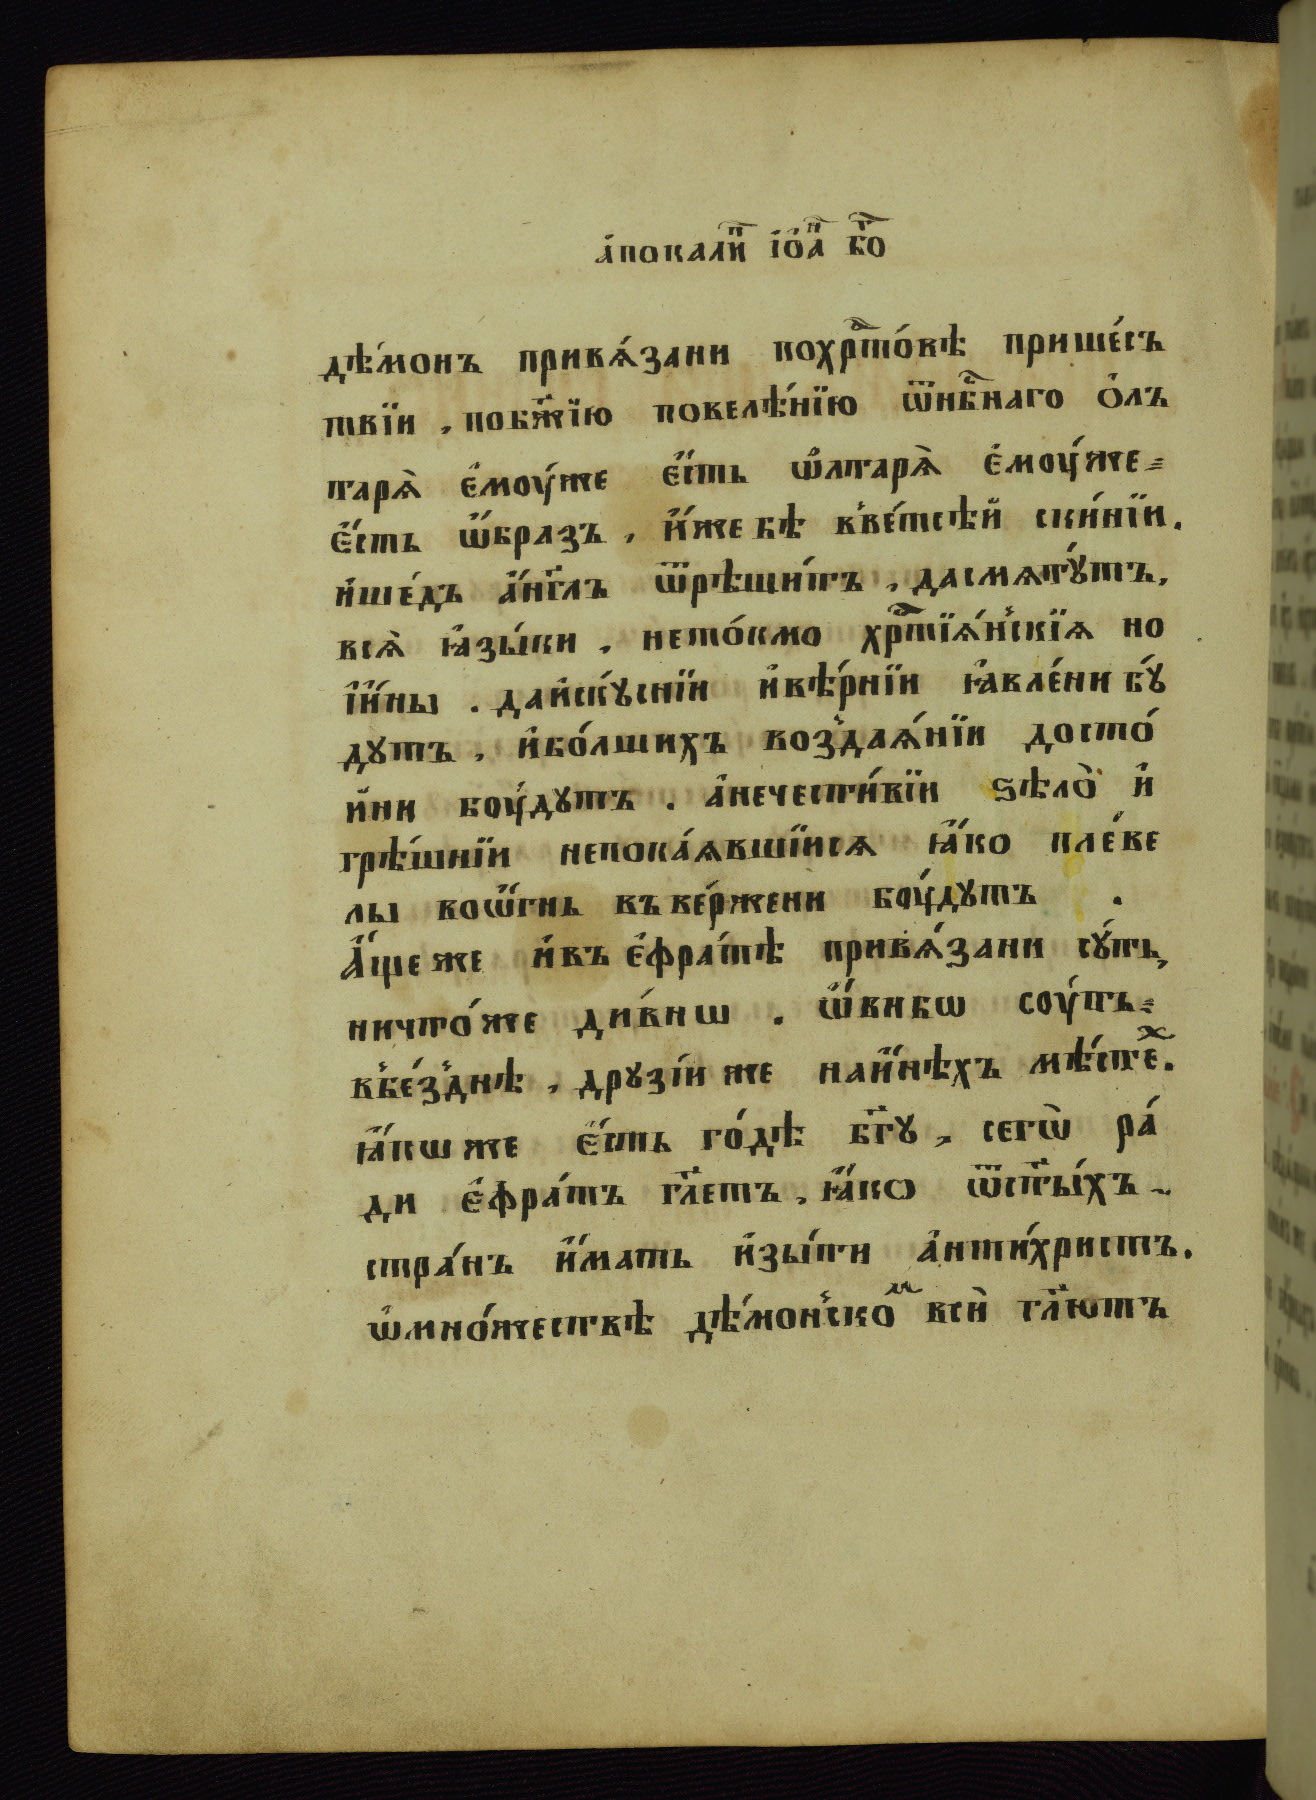 а҆покалиⷫ҇ і҆ѡ҆аⷩ҇ бг҃о
дѣ́монъ привѧ́зани похрⷭ҇то́вѣ прише́съ
твїи , побж҃їю повелѣ́нїю ѿнбⷭ҇наго ѻ҆лъ
тарѧ̀ є҆моу́же є҆́сть ѡ҆лтарѧ̀ є҆моу́же⹀
є҆́сть ѡ҆́бразъ , и҆́же бѣ в̾ве́тсѣй ски́нїи .
и҆ше́дъ а҆́нг҃лъ ѿрѣши́тъ , дасмѧтꙋ́тъ ,
всѧ̀ ꙗ҆зы́ки , нето́кмо хрⷭ҇тїѧ́н̾скїѧ но
і҆и҆́ны . даи҆скꙋ́снїи и҆вѣ́рнїи ꙗ҆вле́ни бꙋ́
дꙋтъ , и҆бо́лшихъ воз̾даѧ́нїи досто́
йни боу́дꙋтъ . а҆нечести́вїи ѕѣлѡ̀ и҆
грѣ́шнїи непока́ѧвшїисѧ ꙗ҆́ко пле́ве
лы воѻ҆́гнь въве́ржени боу́дꙋтъ .
А҆́ще же и҆въ є҆фра́тѣ привѧ́зани сꙋ́ть ,
ничто́же ди́внѡ . ѻ҆́вибѡ соу́ть⹀
в̾бе́з̾днѣ , дрꙋзі́и же наи҆́нѣхъ мѣ́стеⷯ .
ꙗ҆́кѡ же є҆́сть го́дѣ бг҃ꙋ , сегѡ̀ ра́
ди є҆фра́тъ гл҃етъ , ꙗ҆́кѡ ѿсты́хъ
стра́нъ и҆́мать и҆зы́ти а҆нти́христъ .
ѡ҆мно́жествѣ дѣ́мон̾скоⷨ всѝ гл҃ютъ